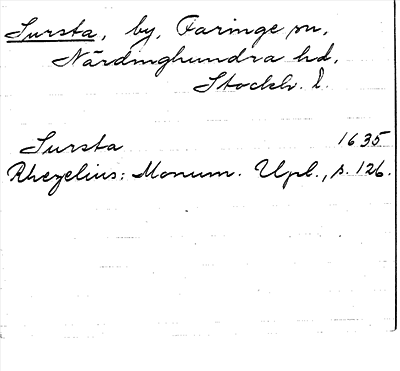 Sursta, by, Faringe sn,
Närdinghundra hd,
Stockh. l.
Sursta 1635
Rhezelius: Monum. Upl., s. 126.